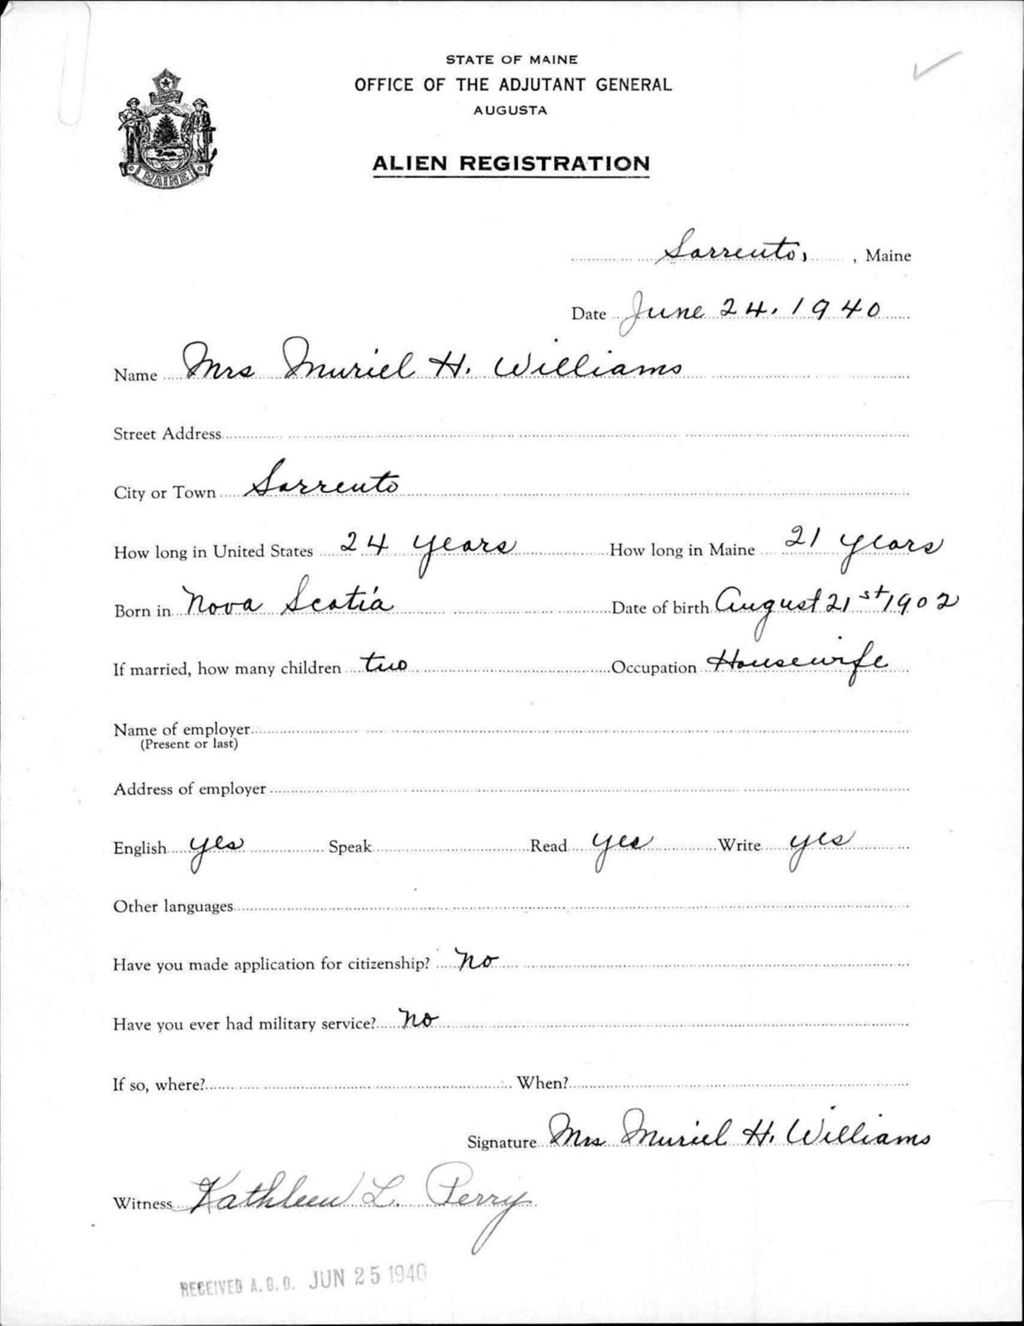 STATE OF MAINE
OFFICE OF THE ADJUTANT GENERAL
AUGUSTA
MAINE
ALIEN REGISTRATION
Sorrento, , Maine
Date June 24, 1940
Name Mrs Muriel H. Williams
Street Address
City or Town Sorrento
How long in United States 24 years How long in Maine 21 years
Born in Nova Scotia Date of birth August 21st 1902
If married, how many children two Occupation Housewife
Name of employer
(Present or last)
Address of employer
English yes Speak Read yes Write yes
Other languages
Have you made application for citizenship? No
Have you ever had military service? No
If so, where? When?
Signature Mrs Muriel H. Williams
Witness Kathleen L. Perry
RECEIVED A.G.O. JUN 25 1940